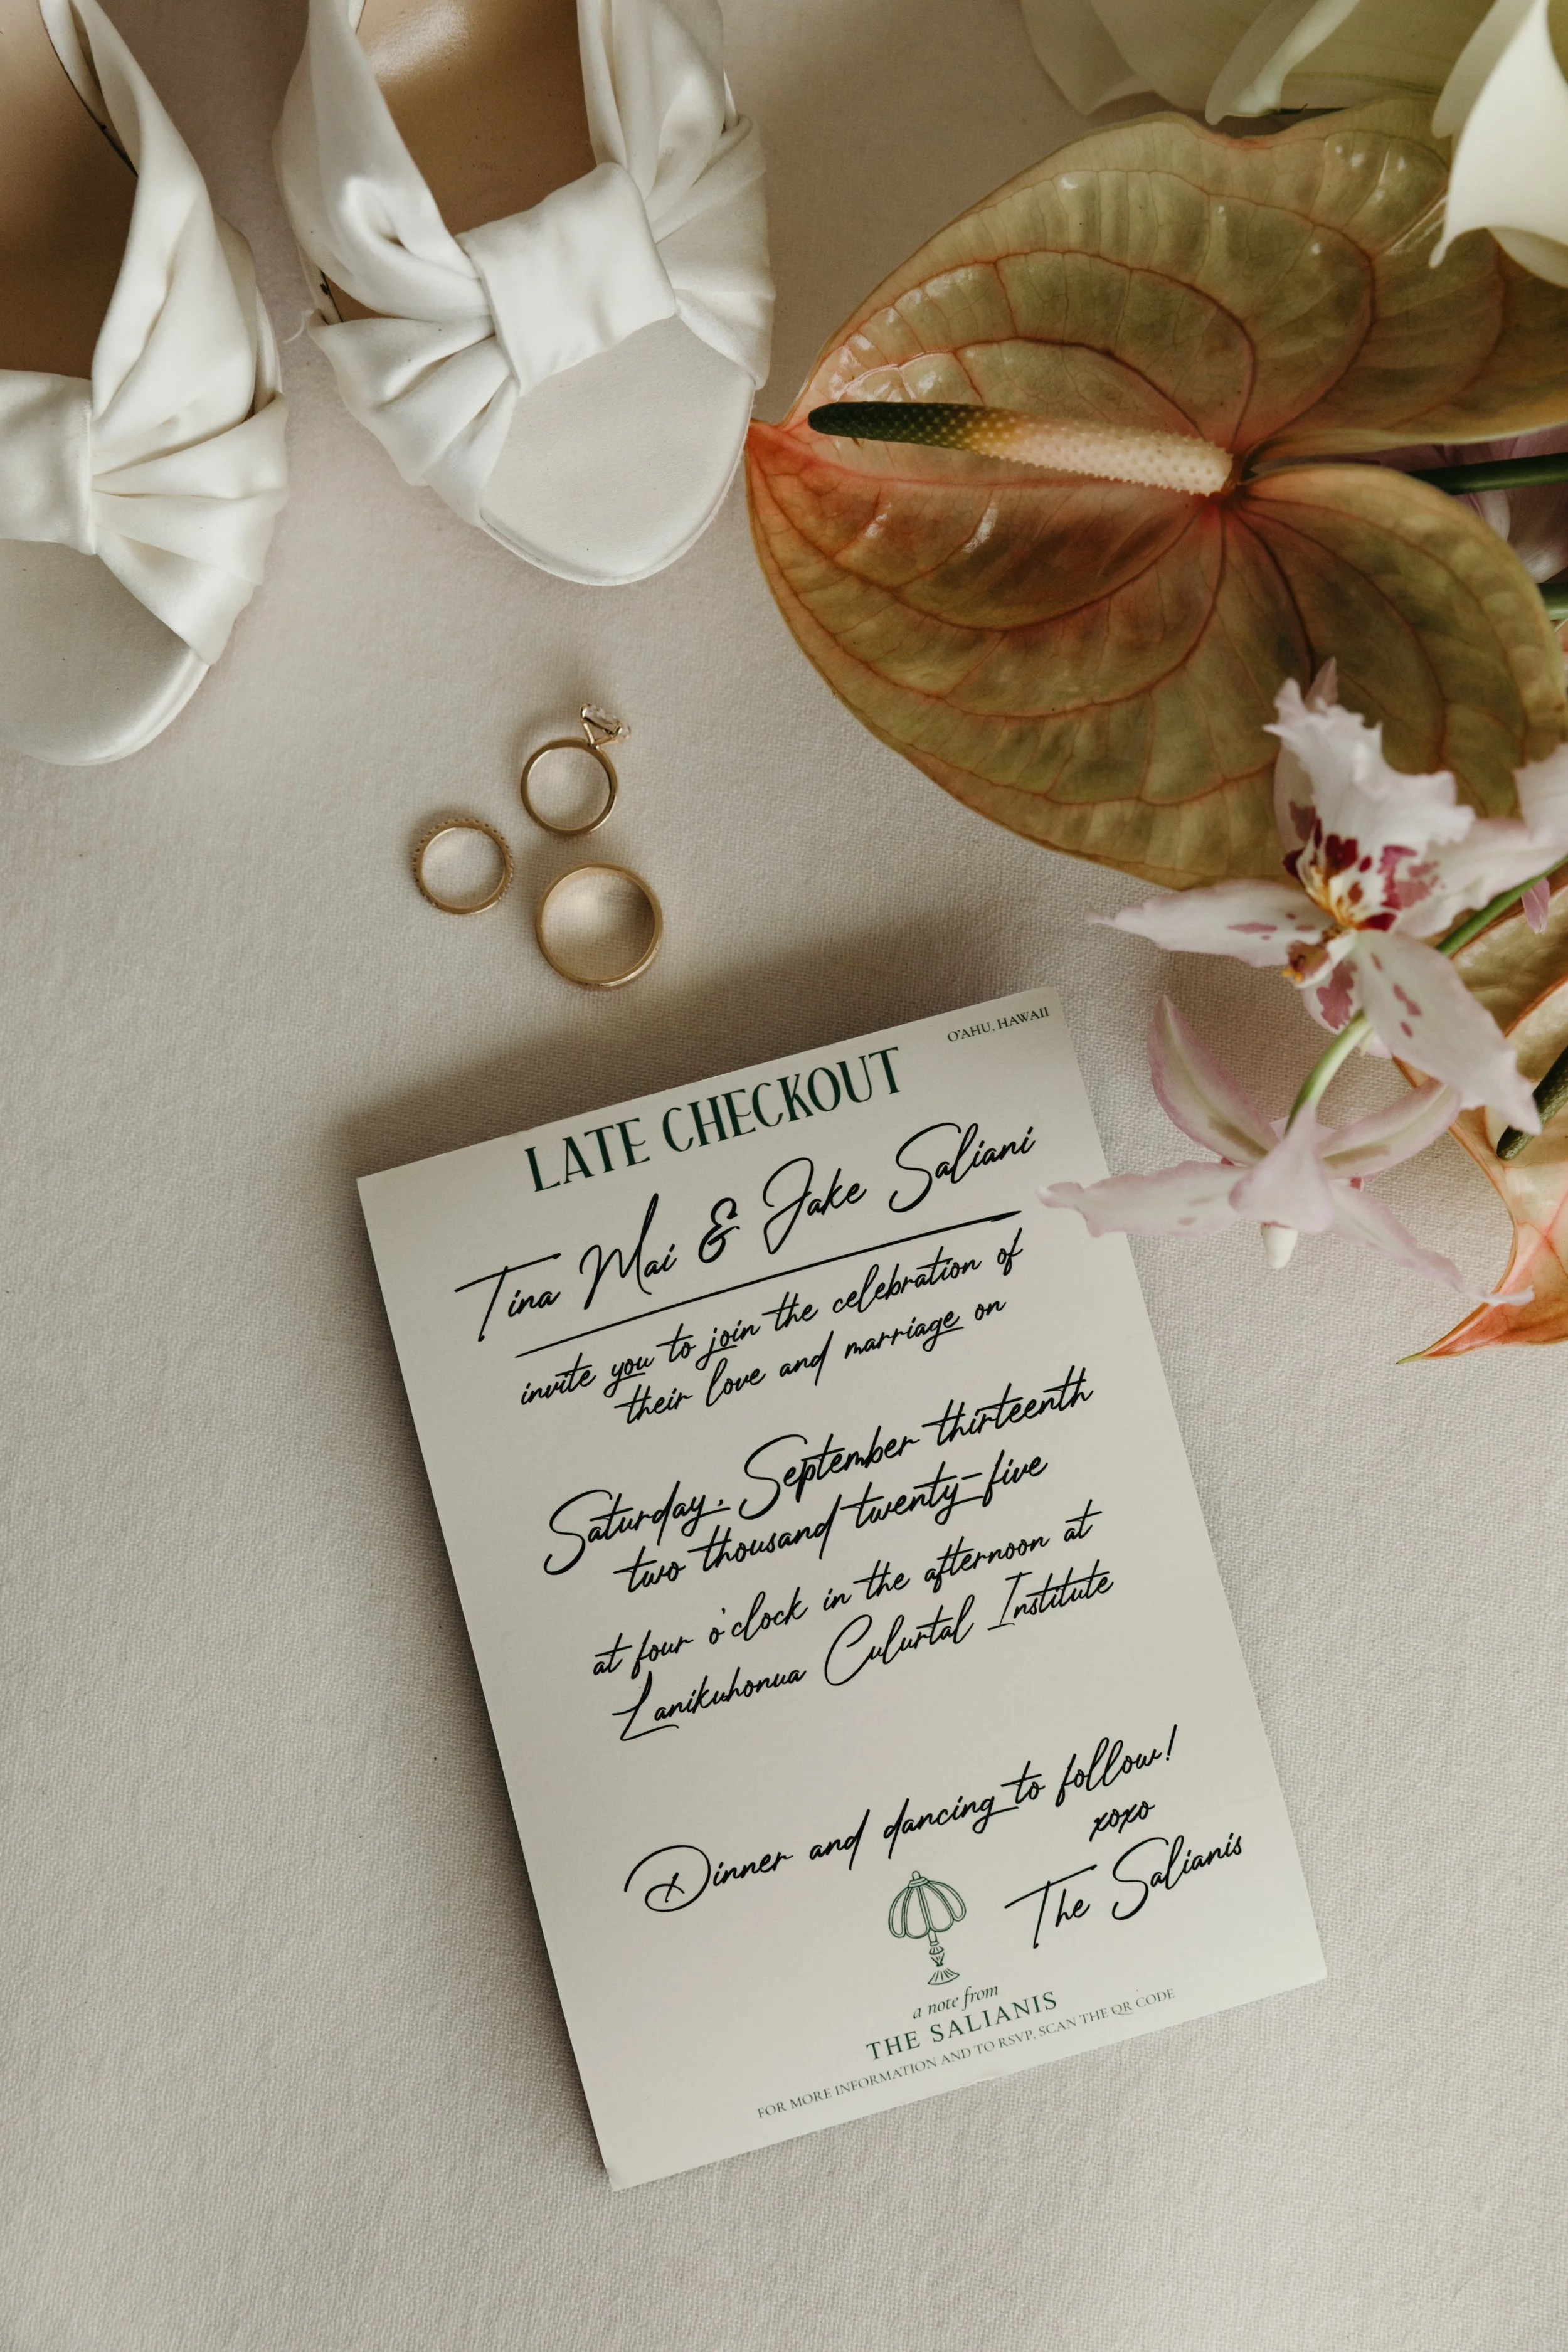 O'AHU, HAWAII
LATE CHECKOUT
Tina Mai & Jake Saliani
invite you to join the celebration of
their love and marriage on
Saturday, September thirteenth
two thousand twenty-five
at four o'clock in the afternoon at
Lanikuhonua Culurtal Institute
Dinner and dancing to follow!
xoxo
The Salianis
a note from
THE SALIANIS
FOR MORE INFORMATION AND TO RSVP, SCAN THE QR CODE